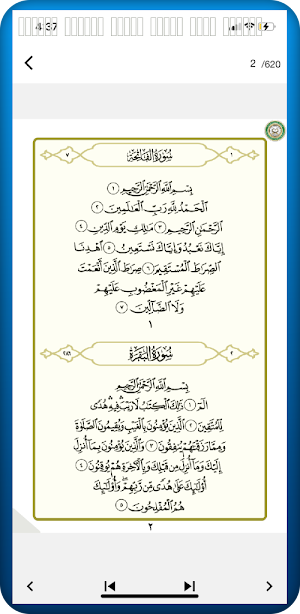 4:37
2 /620
٧ سُورَةُ الفَاتِحَةِ ١
بِسْمِ اللَّهِ الرَّحْمَٰنِ الرَّحِيمِ ١
الْحَمْدُ لِلَّهِ رَبِّ الْعَالَمِينَ ٢
الرَّحْمَٰنِ الرَّحِيمِ ٣ مَالِكِ يَوْمِ الدِّينِ ٤
إِيَّاكَ نَعْبُدُ وَإِيَّاكَ نَسْتَعِينُ ٥ اهْدِنَا
الصِّرَاطَ الْمُسْتَقِيمَ ٦ صِرَاطَ الَّذِينَ أَنْعَمْتَ
عَلَيْهِمْ غَيْرِ الْمَغْضُوبِ عَلَيْهِمْ
وَلَا الضَّالِّينَ ٧
١
٢٨٦ سُورَةُ البَقَرَةِ ٢
بِسْمِ اللَّهِ الرَّحْمَٰنِ الرَّحِيمِ
الم ١ ذَٰلِكَ الْكِتَابُ لَا رَيْبَ فِيهِ هُدًى
لِلْمُتَّقِينَ ٢ الَّذِينَ يُؤْمِنُونَ بِالْغَيْبِ وَيُقِيمُونَ الصَّلَاةَ
وَمِمَّا رَزَقْنَاهُمْ يُنْفِقُونَ ٣ وَالَّذِينَ يُؤْمِنُونَ بِمَا أُنْزِلَ
إِلَيْكَ وَمَا أُنْزِلَ مِنْ قَبْلِكَ وَبِالْآخِرَةِ هُمْ يُوقِنُونَ ٤
أُولَٰئِكَ عَلَىٰ هُدًى مِنْ رَبِّهِمْ وَأُولَٰئِكَ
هُمُ الْمُفْلِحُونَ ٥
٢